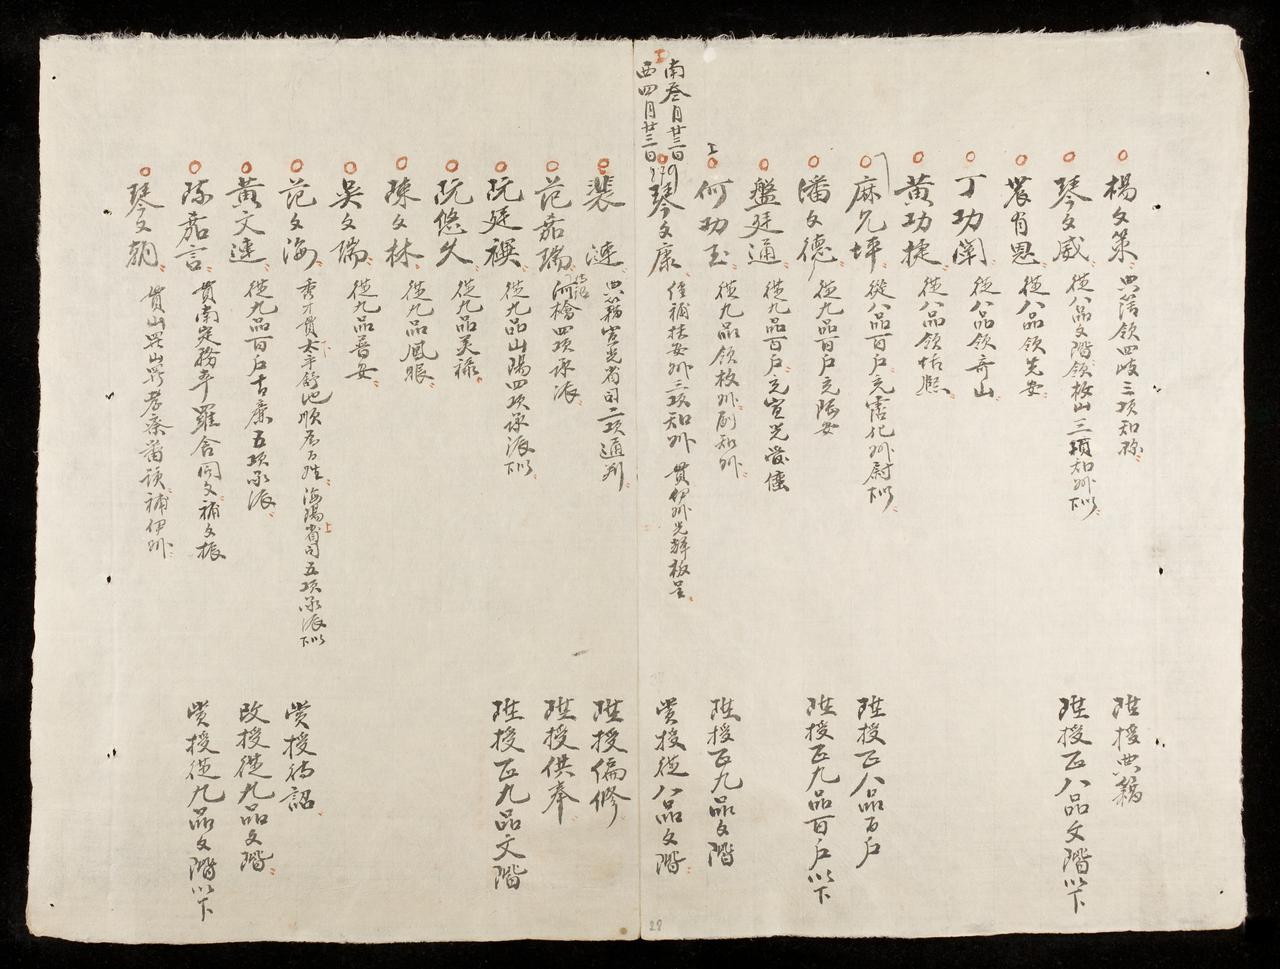 楊文策 典簿領四岐三項知縣 陞授典籍
琴文威 從八品文階領枚山三項知州 陞授正八品文階以下
農有恩 從八品領先安
丁功蘭 從八品領奇山
黃功捷 從八品領恬熙
麻允坪 從八品百戶充霑化州尉 陞授正八品百戶
潘文德 從九品百戶充 陞授正九品百戶以下
盤廷通 從九品百戶充宣光
何功玉 從九品領枚州副知州 陞授正九品文階
南叁月廿三日
西四月廿三日
琴文康 補扶安州三項知州 貫 賞授從八品文階
裴漣 典籍宣光省司二項通判 陞授編修
范嘉瑞 待詔 河檜四項承派 陞授供奉
阮廷禩 從九品山陽四項承派 陞授正九品文階
阮悠久 從九品美祿
陳文林 從九品鳳眼
吳文瑞 從九品普安
范文海 秀才貫太平舒池順爲下姓海陽省司五項承派 賞授待詔
黃文漣 從九品百戶古廉五項承派 改授從九品文階
陳嘉言 貫南定務本羅舍 補文振 賞授從九品文階以下
琴文朝 貫山 補伊州
28